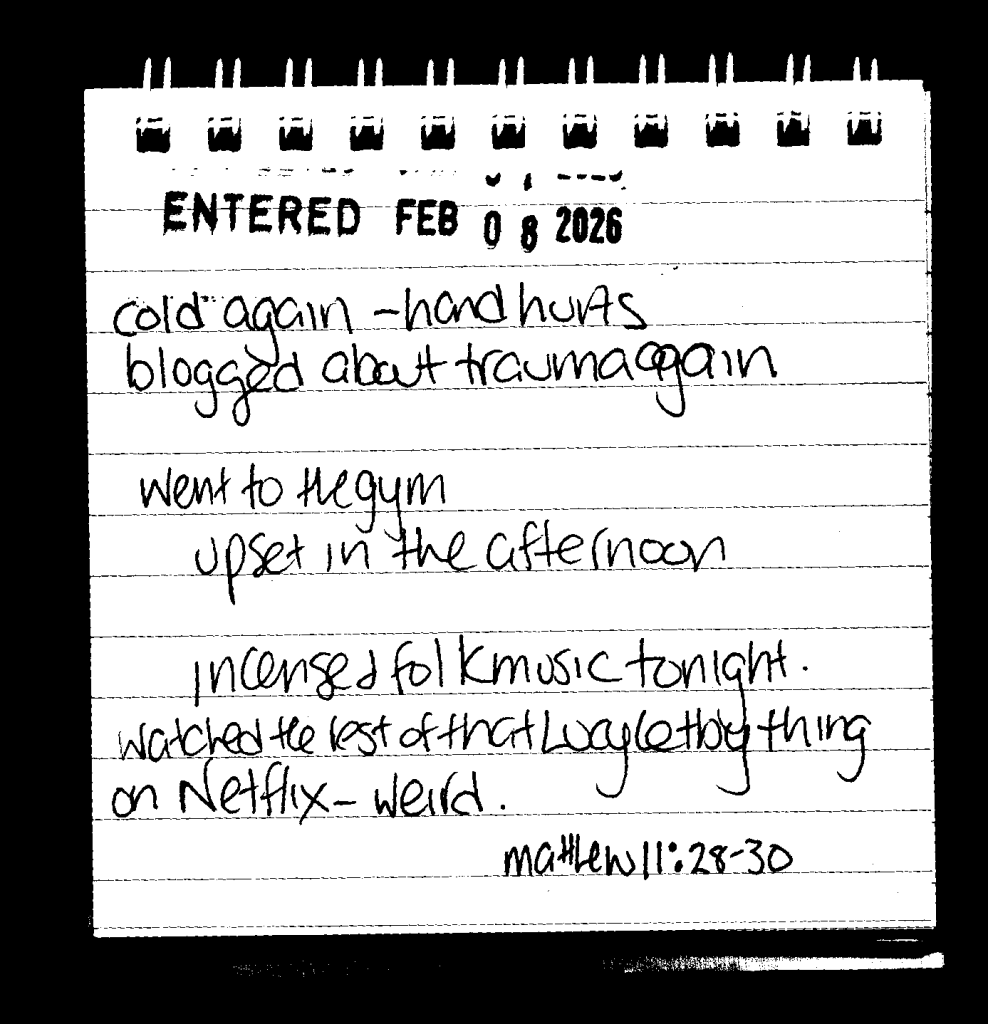 ENTERED FEB 08 2026
cold again - hand hurts
blogged about trauma again
went to the gym
upset in the afternoon
incensed folk music tonight.
watched the rest of that Lucy Letby thing
on Netflix - weird.
matthew 11:28-30